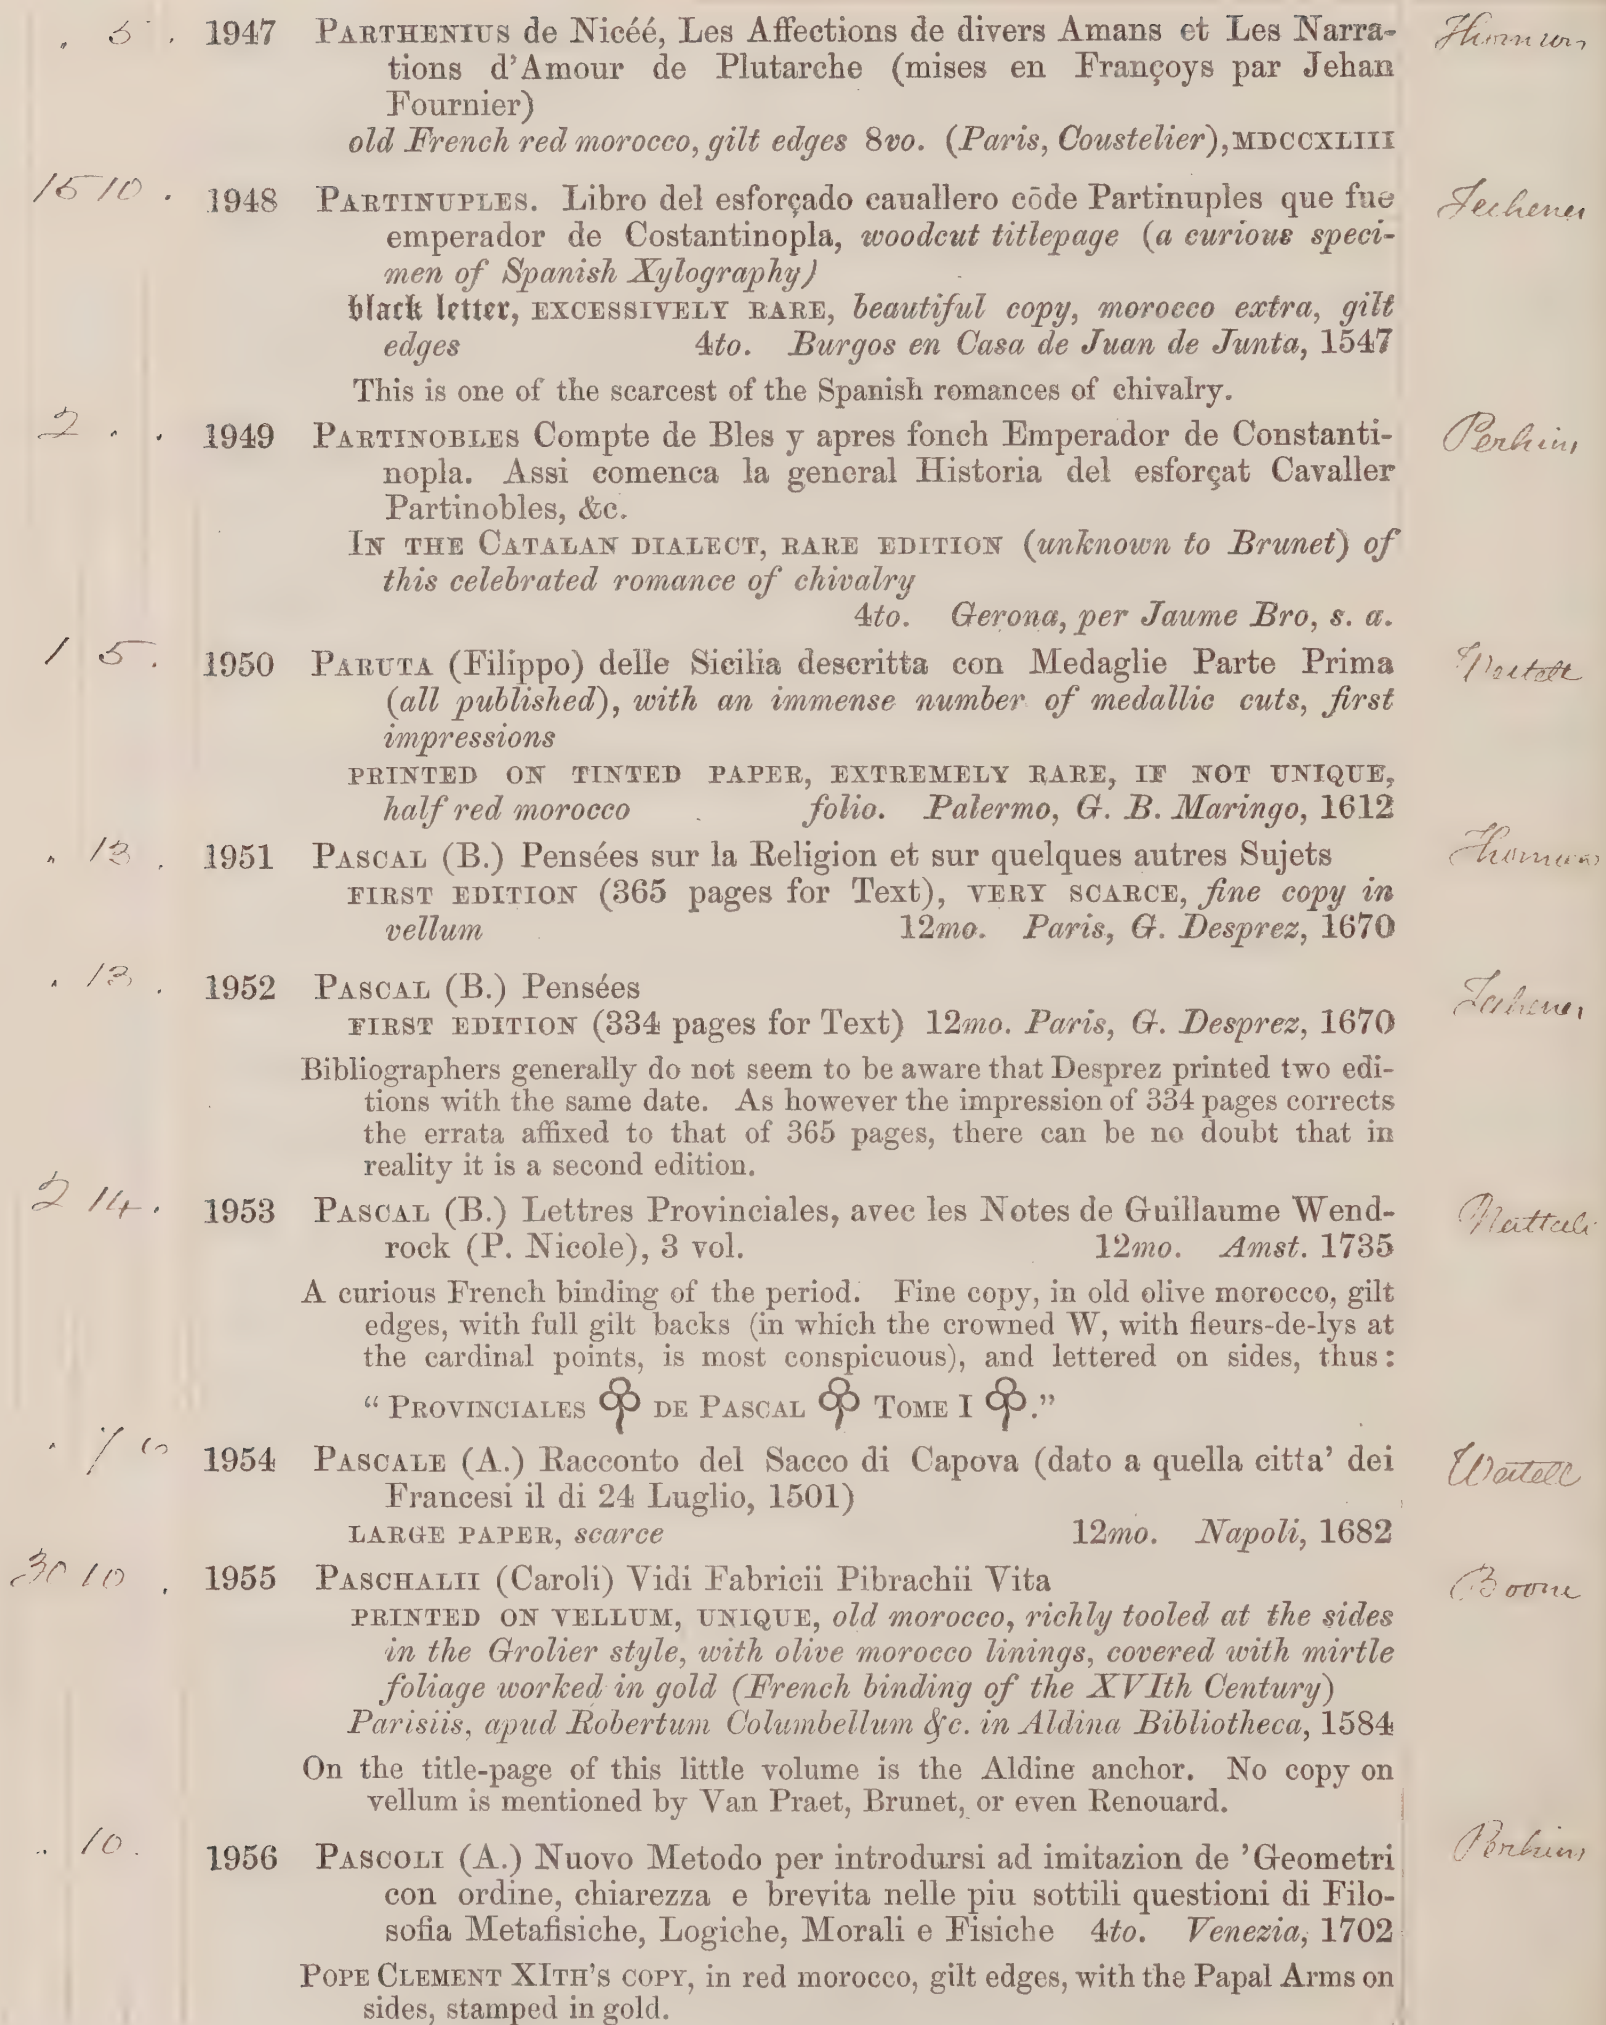 . 5 . 1947 PARTHENIUS de Nicéé, Les Affections de divers Amans et Les Narra-
tions d'Amour de Plutarche (mises en Françoys par Jehan
Fournier)
old French red morocco, gilt edges 8vo. (Paris, Coustelier), MDCCXLIII
15 10 . 1948 PARTINUPLES. Libro del esforçado cauallero cōde Partinuples que fue
emperador de Costantinopla, woodcut titlepage (a curious speci-
men of Spanish Xylography)
black letter, EXCESSIVELY RARE, beautiful copy, morocco extra, gilt
edges 4to. Burgos en Casa de Juan de Junta, 1547
This is one of the scarcest of the Spanish romances of chivalry.
2 . . 1949 PARTINOBLES Compte de Bles y apres fonch Emperador de Constanti- Perkins
nopla. Assi comenca la general Historia del esforçat Cavaller
Partinobles, &c.
IN THE CATALAN DIALECT, RARE EDITION (unknown to Brunet) of
this celebrated romance of chivalry
4to. Gerona, per Jaume Bro, s. a.
1 5 . 1950 PARUTA (Filippo) delle Sicilia descritta con Medaglie Parte Prima
(all published), with an immense number of medallic cuts, first
impressions
PRINTED ON TINTED PAPER, EXTREMELY RARE, IF NOT UNIQUE,
half red morocco folio. Palermo, G. B. Maringo, 1612
. 13 . 1951 PASCAL (B.) Pensées sur la Religion et sur quelques autres Sujets
FIRST EDITION (365 pages for Text), VERY SCARCE, fine copy in
vellum 12mo. Paris, G. Desprez, 1670
. 13 . 1952 PASCAL (B.) Pensées
FIRST EDITION (334 pages for Text) 12mo. Paris, G. Desprez, 1670
Bibliographers generally do not seem to be aware that Desprez printed two edi-
tions with the same date. As however the impression of 334 pages corrects
the errata affixed to that of 365 pages, there can be no doubt that in
reality it is a second edition.
2 14 . 1953 PASCAL (B.) Lettres Provinciales, avec les Notes de Guillaume Wend- Nattali
rock (P. Nicole), 3 vol. 12mo. Amst. 1735
A curious French binding of the period. Fine copy, in old olive morocco, gilt
edges, with full gilt backs (in which the crowned W, with fleurs-de-lys at
the cardinal points, is most conspicuous), and lettered on sides, thus:
" PROVINCIALES DE PASCAL TOME I ."
1954 PASCALE (A.) Racconto del Sacco di Capova (dato a quella citta' dei
Francesi il di 24 Luglio, 1501)
LARGE PAPER, scarce 12mo. Napoli, 1682
30 10 . 1955 PASCHALII (Caroli) Vidi Fabricii Pibrachii Vita Boone
PRINTED ON VELLUM, UNIQUE, old morocco, richly tooled at the sides
in the Grolier style, with olive morocco linings, covered with mirtle
foliage worked in gold (French binding of the XVIth Century)
Parisiis, apud Robertum Columbellum &c. in Aldina Bibliotheca, 1584
On the title-page of this little volume is the Aldine anchor. No copy on
vellum is mentioned by Van Praet, Brunet, or even Renouard.
. 10 . 1956 PASCOLI (A.) Nuovo Metodo per introdursi ad imitazion de 'Geometri Perkins
con ordine, chiarezza e brevita nelle piu sottili questioni di Filo-
sofia Metafisiche, Logiche, Morali e Fisiche 4to. Venezia, 1702
POPE CLEMENT XITH'S COPY, in red morocco, gilt edges, with the Papal Arms on
sides, stamped in gold.